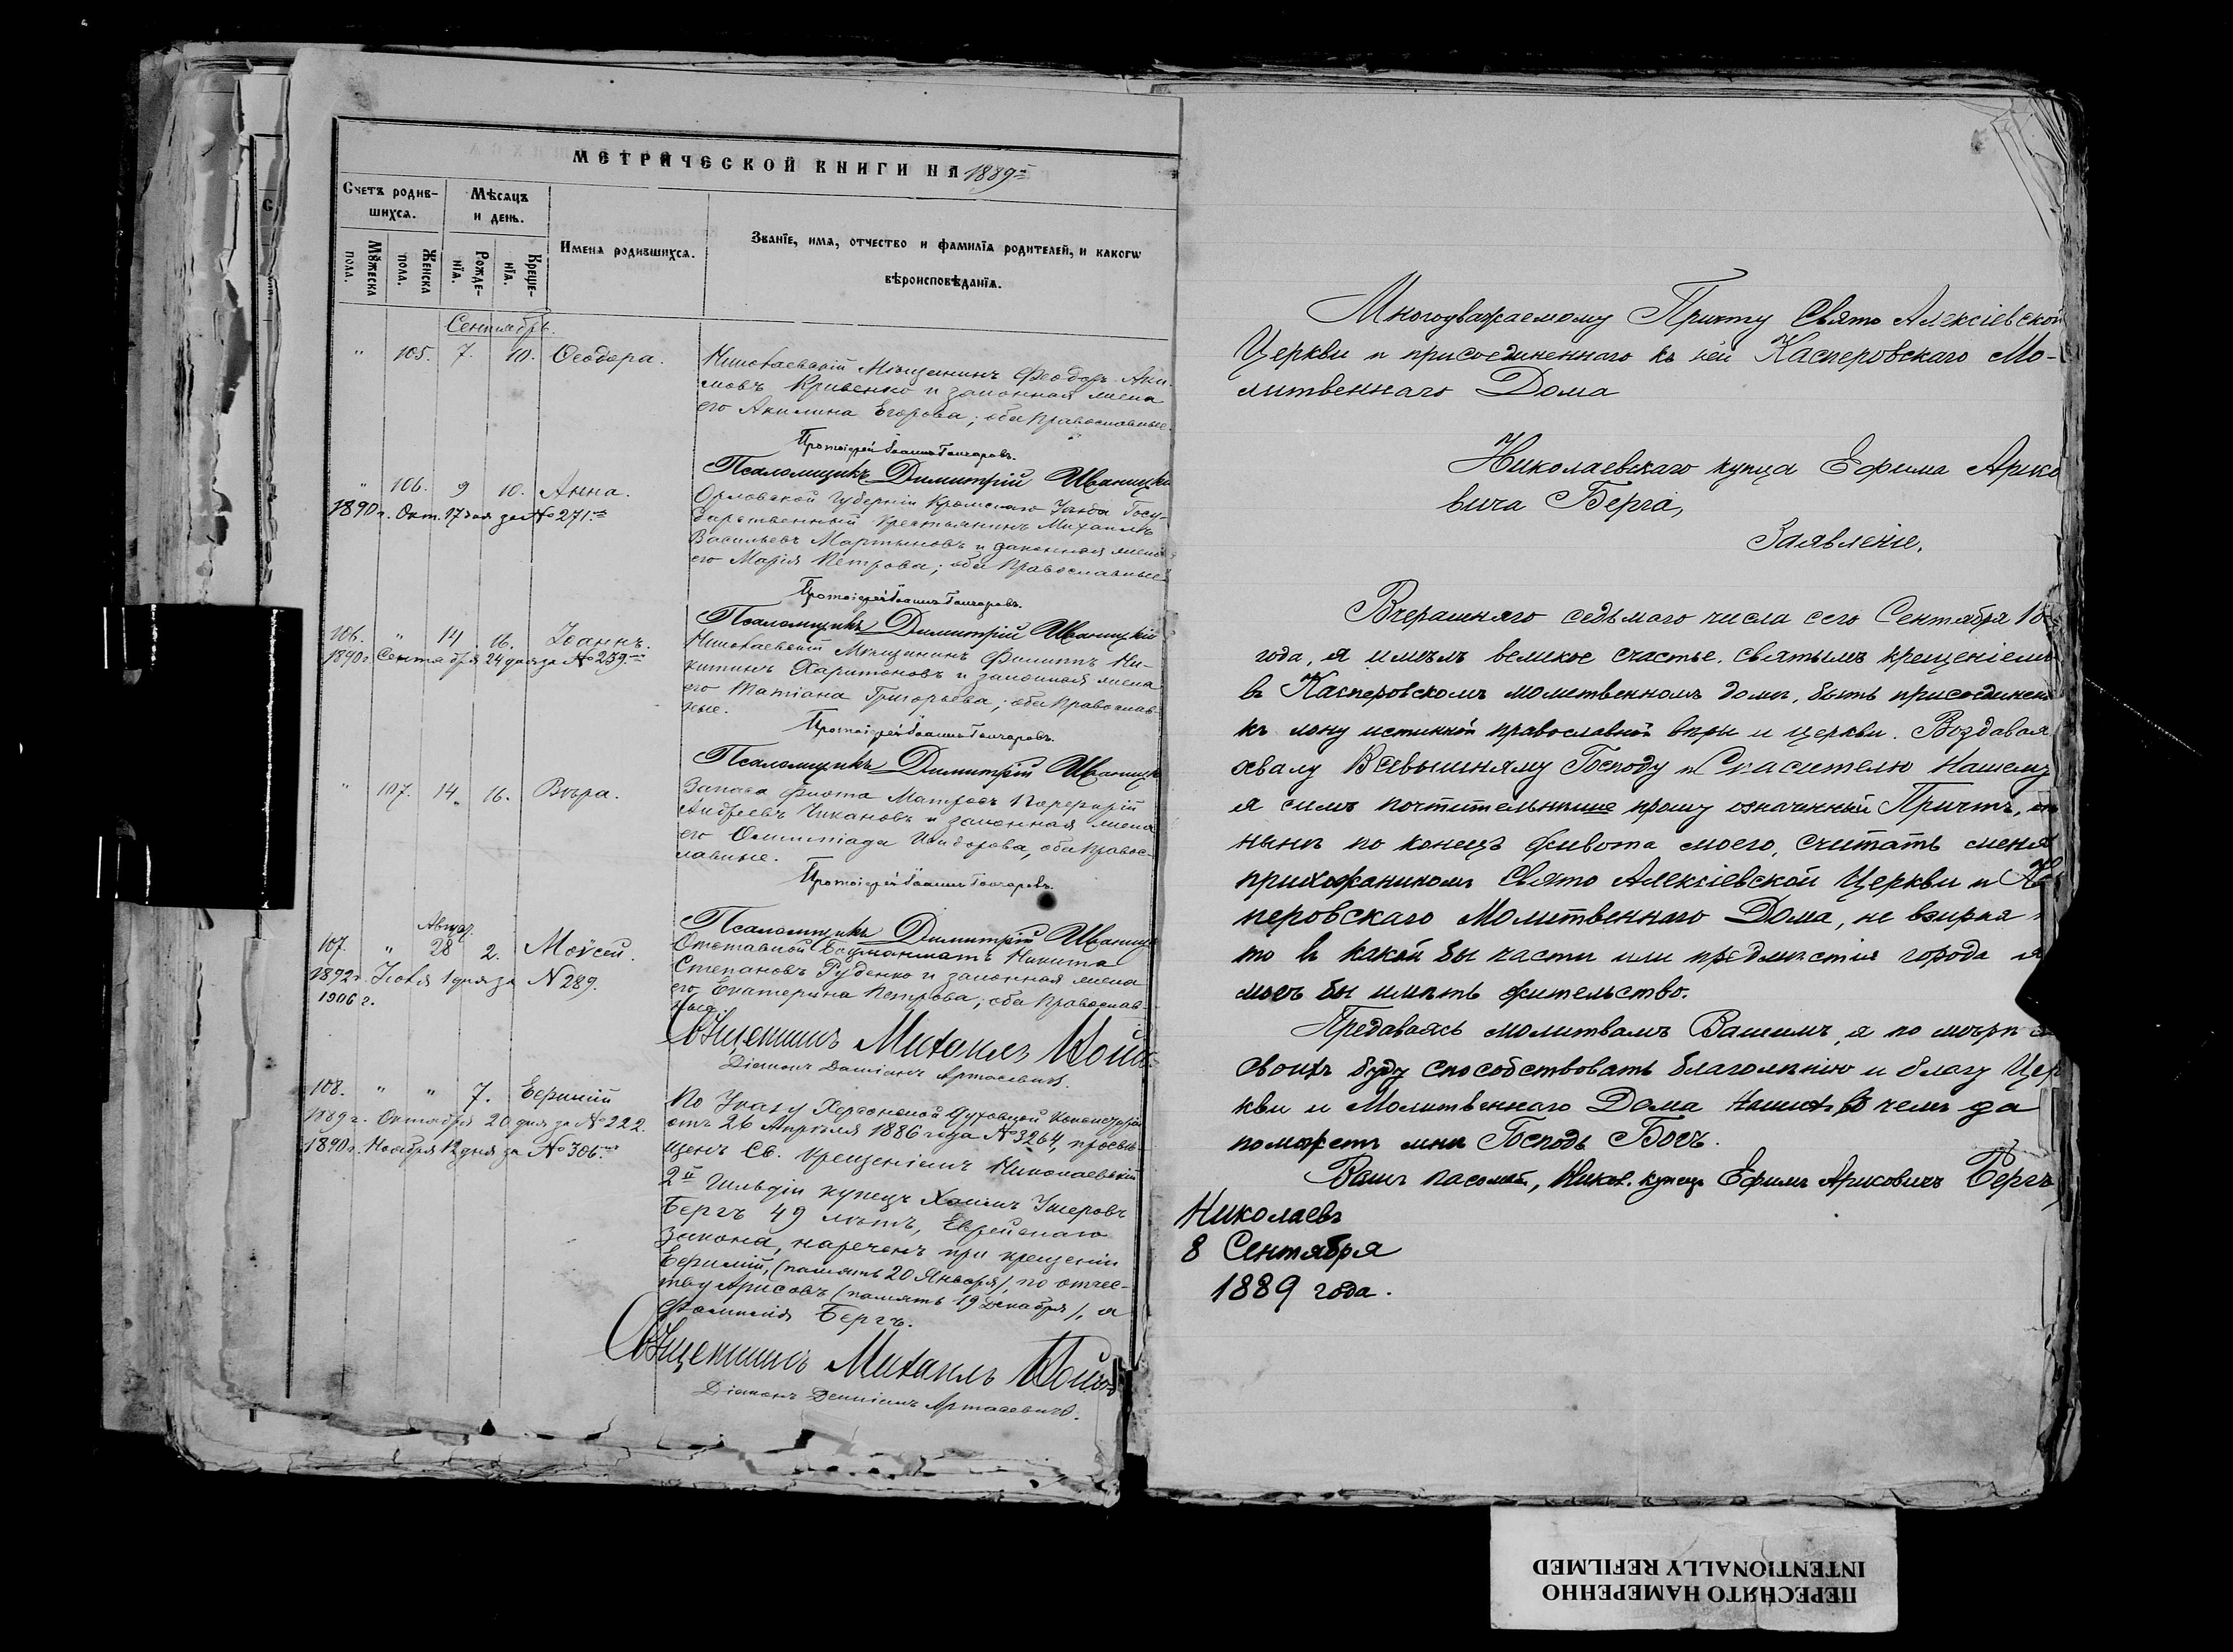 МЕТРИЧЕСКОЙ КНИГИ НА 1889
Счетъ родив-
шихся.
Мѣсяцъ
и день.
Имена родившихся.
Званїе, имя, отчество и фамилїя родителей, и какогѡ
вѣроисповѣданїя.
Мꙋжеска
пола.
Женска
пола.
Рожде-
нїя.
Креще-
нїя.
Сентябрь.
" 105. 7. 10. Ѳеодора.
Николаевскій Мѣщанинъ Ѳеодоръ Аки-
мовъ Кривенко и законная жена
его Акилина Егорова; оба Православные.
Протоіерей Іоаннъ Гончаровъ.
Псаломщикъ Димитрій Иваницкі
" 106. 9 10. Анна.
1890 г. Окт. 17 дня за № 271.
Орловской Губерніи Кромскаго Уѣзда Госу-
дарственный Крестьянинъ Михаилъ
Васильевъ Мартыновъ и законная жена
его Марія Петрова; оба Православные
Протоіерей Іоаннъ Гончаровъ.
Псаломщикъ Димитрій Иваницкій
106. " 14. 16. Іоаннъ.
1890 г. Сентября 24 дня за № 239.
Николаевскій Мѣщанинъ Филиппъ Ни-
китинъ Харитоновъ и законная жена
его Татіана Григорьева; оба Православ-
ные.
Протоіерей Іоаннъ Гончаровъ.
Псаломщикъ Димитрій Иваницк
" 107. 14. 16. Вѣра.
Запаса флота Матросъ Порфирій
Андреевъ Чикановъ и законная жена
его Олимпіада Исидорова, оба Правос-
лавные.
Протоіерей Іоаннъ Гончаровъ.
Псаломщикъ Димитрій Иваницк
Август.
107. " 28 2. Моѵсей.
1892 г. Іюля 1 дня за № 289.
1906 г.
Отставной Боцманматъ Никита
Степановъ Руденко и законная жена
его Екатерина Петрова; оба Православ-
ные.
Священникъ Михаилъ
Діаконъ Даміанъ Артасевичъ.
108. " " 7. Евфимій
1889 г. Октября 20 дня за № 222.
1890 г. Ноября 12 дня за № 306.
По Указу Херсонской Духовной Консисторіи
отъ 26 Апрѣля 1886 года № 3264, просвѣ-
щенъ Св. Крещеніемъ Николаевскій
2й Гильдіи купецъ Хаимъ Ушеровъ
Бергъ 49 лѣтъ, Еврейскаго
закона, нареченъ при крещеніи
Евфимій, (память 20 Января), по отчес-
тву Арисовъ (память 19 Декабря), а
фамилія Бергъ.
Священникъ Михаилъ
Діаконъ Даміанъ Артасевичъ.
Многоуважаемому Причту Свято Алексіевской
Церкви и присоединеннаго къ ней Касперовскаго Мо-
литвеннаго Дома
Николаевскаго купца Ефима Арисо
вича Берга,
Заявленіе.
Вчерашняго седьмаго числа сего Сентября 18
года, я имѣлъ великое счастье, святымъ крещеніемъ
въ Касперовскомъ молитвенномъ домѣ, быть присоединенъ
къ лону истинной православной вѣры и церкви. Воздавая
хвалу Всевышнему Господу и Спасителю Нашему
я симъ почтительнѣйше прошу означенный Причтъ, от
нынѣ по конецъ живота моего, считать меня
прихожаниномъ Свято Алексіевской Церкви и Кас
перовскаго Молитвеннаго Дома, не взирая н
то въ какой бы части или предмѣстіи города я
могъ бы имѣть жительство.
Предаваясь молитвамъ Вашимъ, я по мѣрѣ
своихъ буду способствовать благолѣпію и благу Цер
кви и Молитвеннаго Дома Нашихъ въ чемъ да
поможетъ мнѣ Господь Богъ.
Вашъ пасомый, Никол. купецъ Ефимъ Арисовичъ Бергъ
Николаевъ
8 Сентября
1889 года.
ПЕРЕСНЯТО НАМЕРЕННО
INTENTIONALLY REFILMED